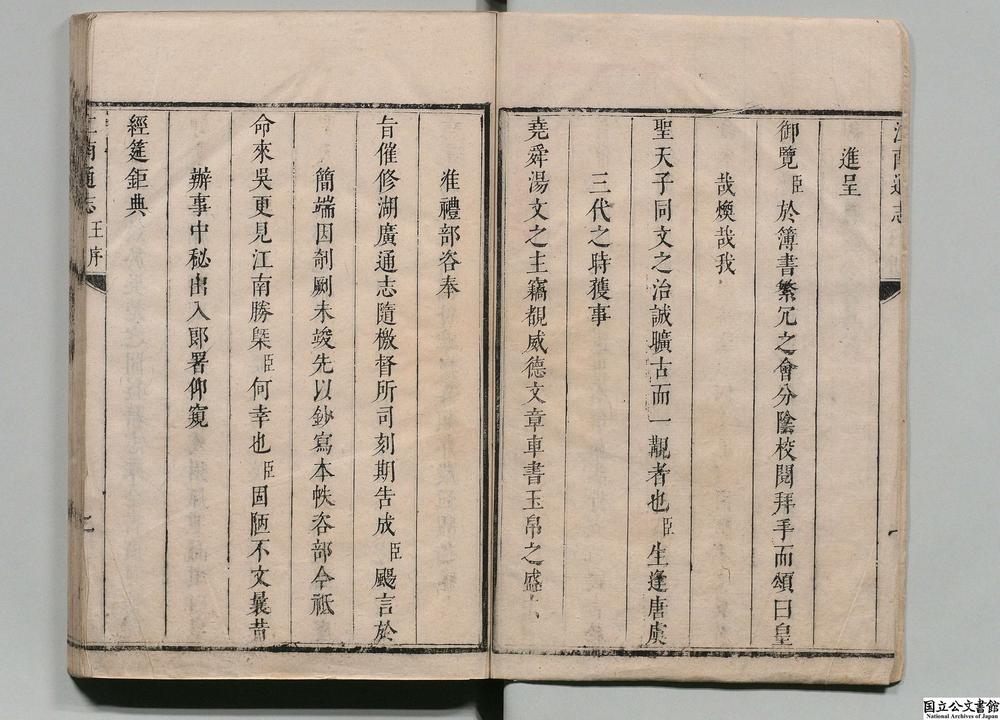 江南通志
進呈
御覽臣於簿書繁冗之會分陰校閱拜手而頌曰皇
哉煥哉我
聖天子同文之治誠曠古而一覯者也臣生逢唐虞
三代之時獲事
堯舜湯文之主竊覩威德文章車書玉帛之盛
准禮部咨奉
旨催修湖廣通志隨檄督所司刻期告成臣颺言於
簡端因剞劂未竣先以鈔寫本帙咨部今祗
命來吳更見江南勝槩臣何幸也臣固陋不文曩昔
辦事中秘出入郎署仰窺
經筵鉅典
江南通志 王序
国立公文書館
National Archives of Japan